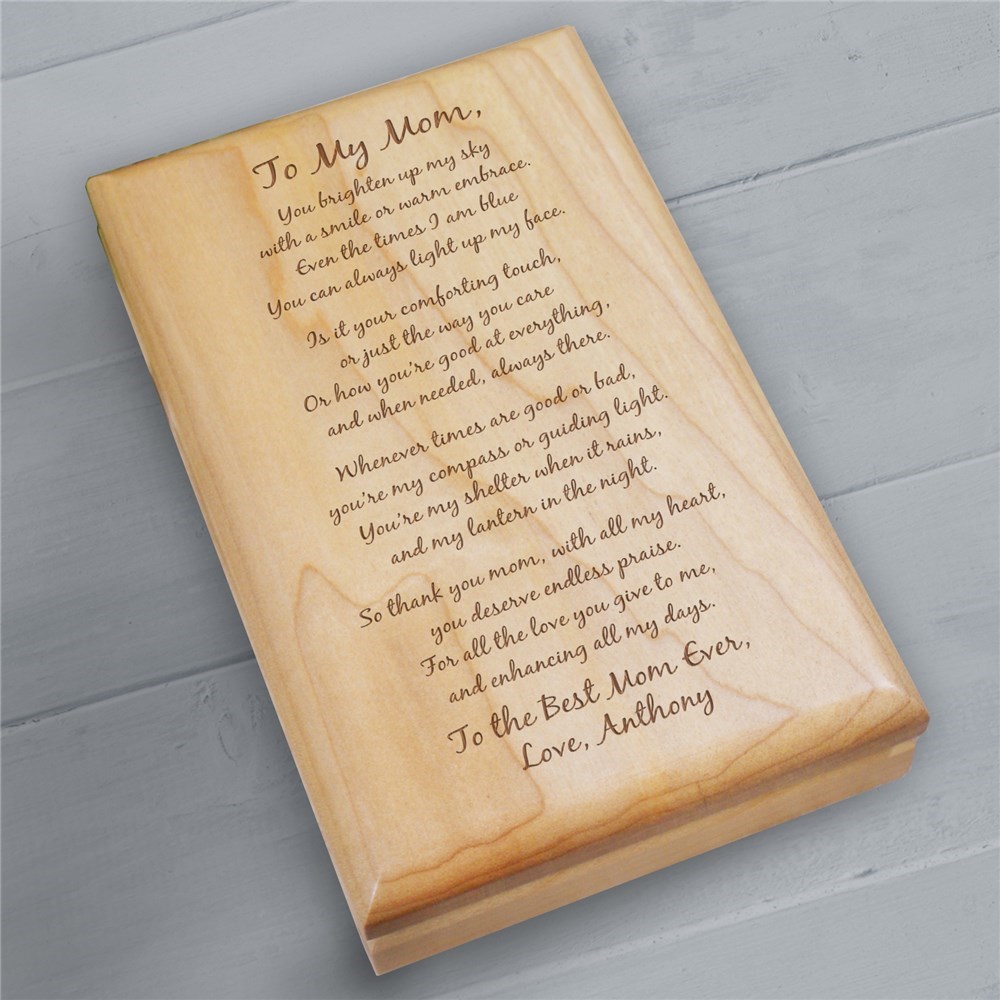 To My Mom,
You brighten up my sky
with a smile or warm embrace.
Even the times I am blue
You can always light up my face.
Is it your comforting touch,
or just the way you care
Or how you're good at everything,
and when needed, always there.
Whenever times are good or bad,
you're my compass or guiding light.
You're my shelter when it rains,
and my lantern in the night.
So thank you mom, with all my heart,
you deserve endless praise.
For all the love you give to me,
and enhancing all my days.
To the Best Mom Ever,
Love, Anthony